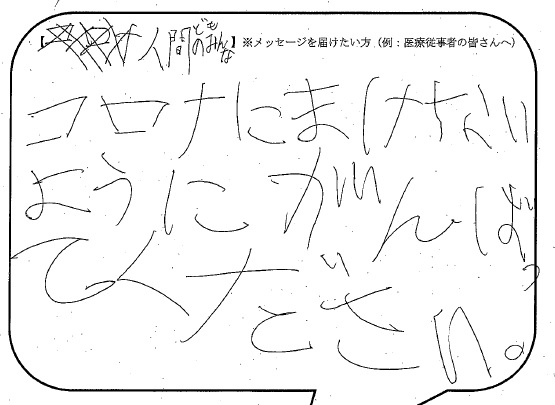 【人間どものみんな】※メッセージを届けたい方（例：医療従事者の皆さんへ）
コロナにまけない
ように がんばっ
てください。